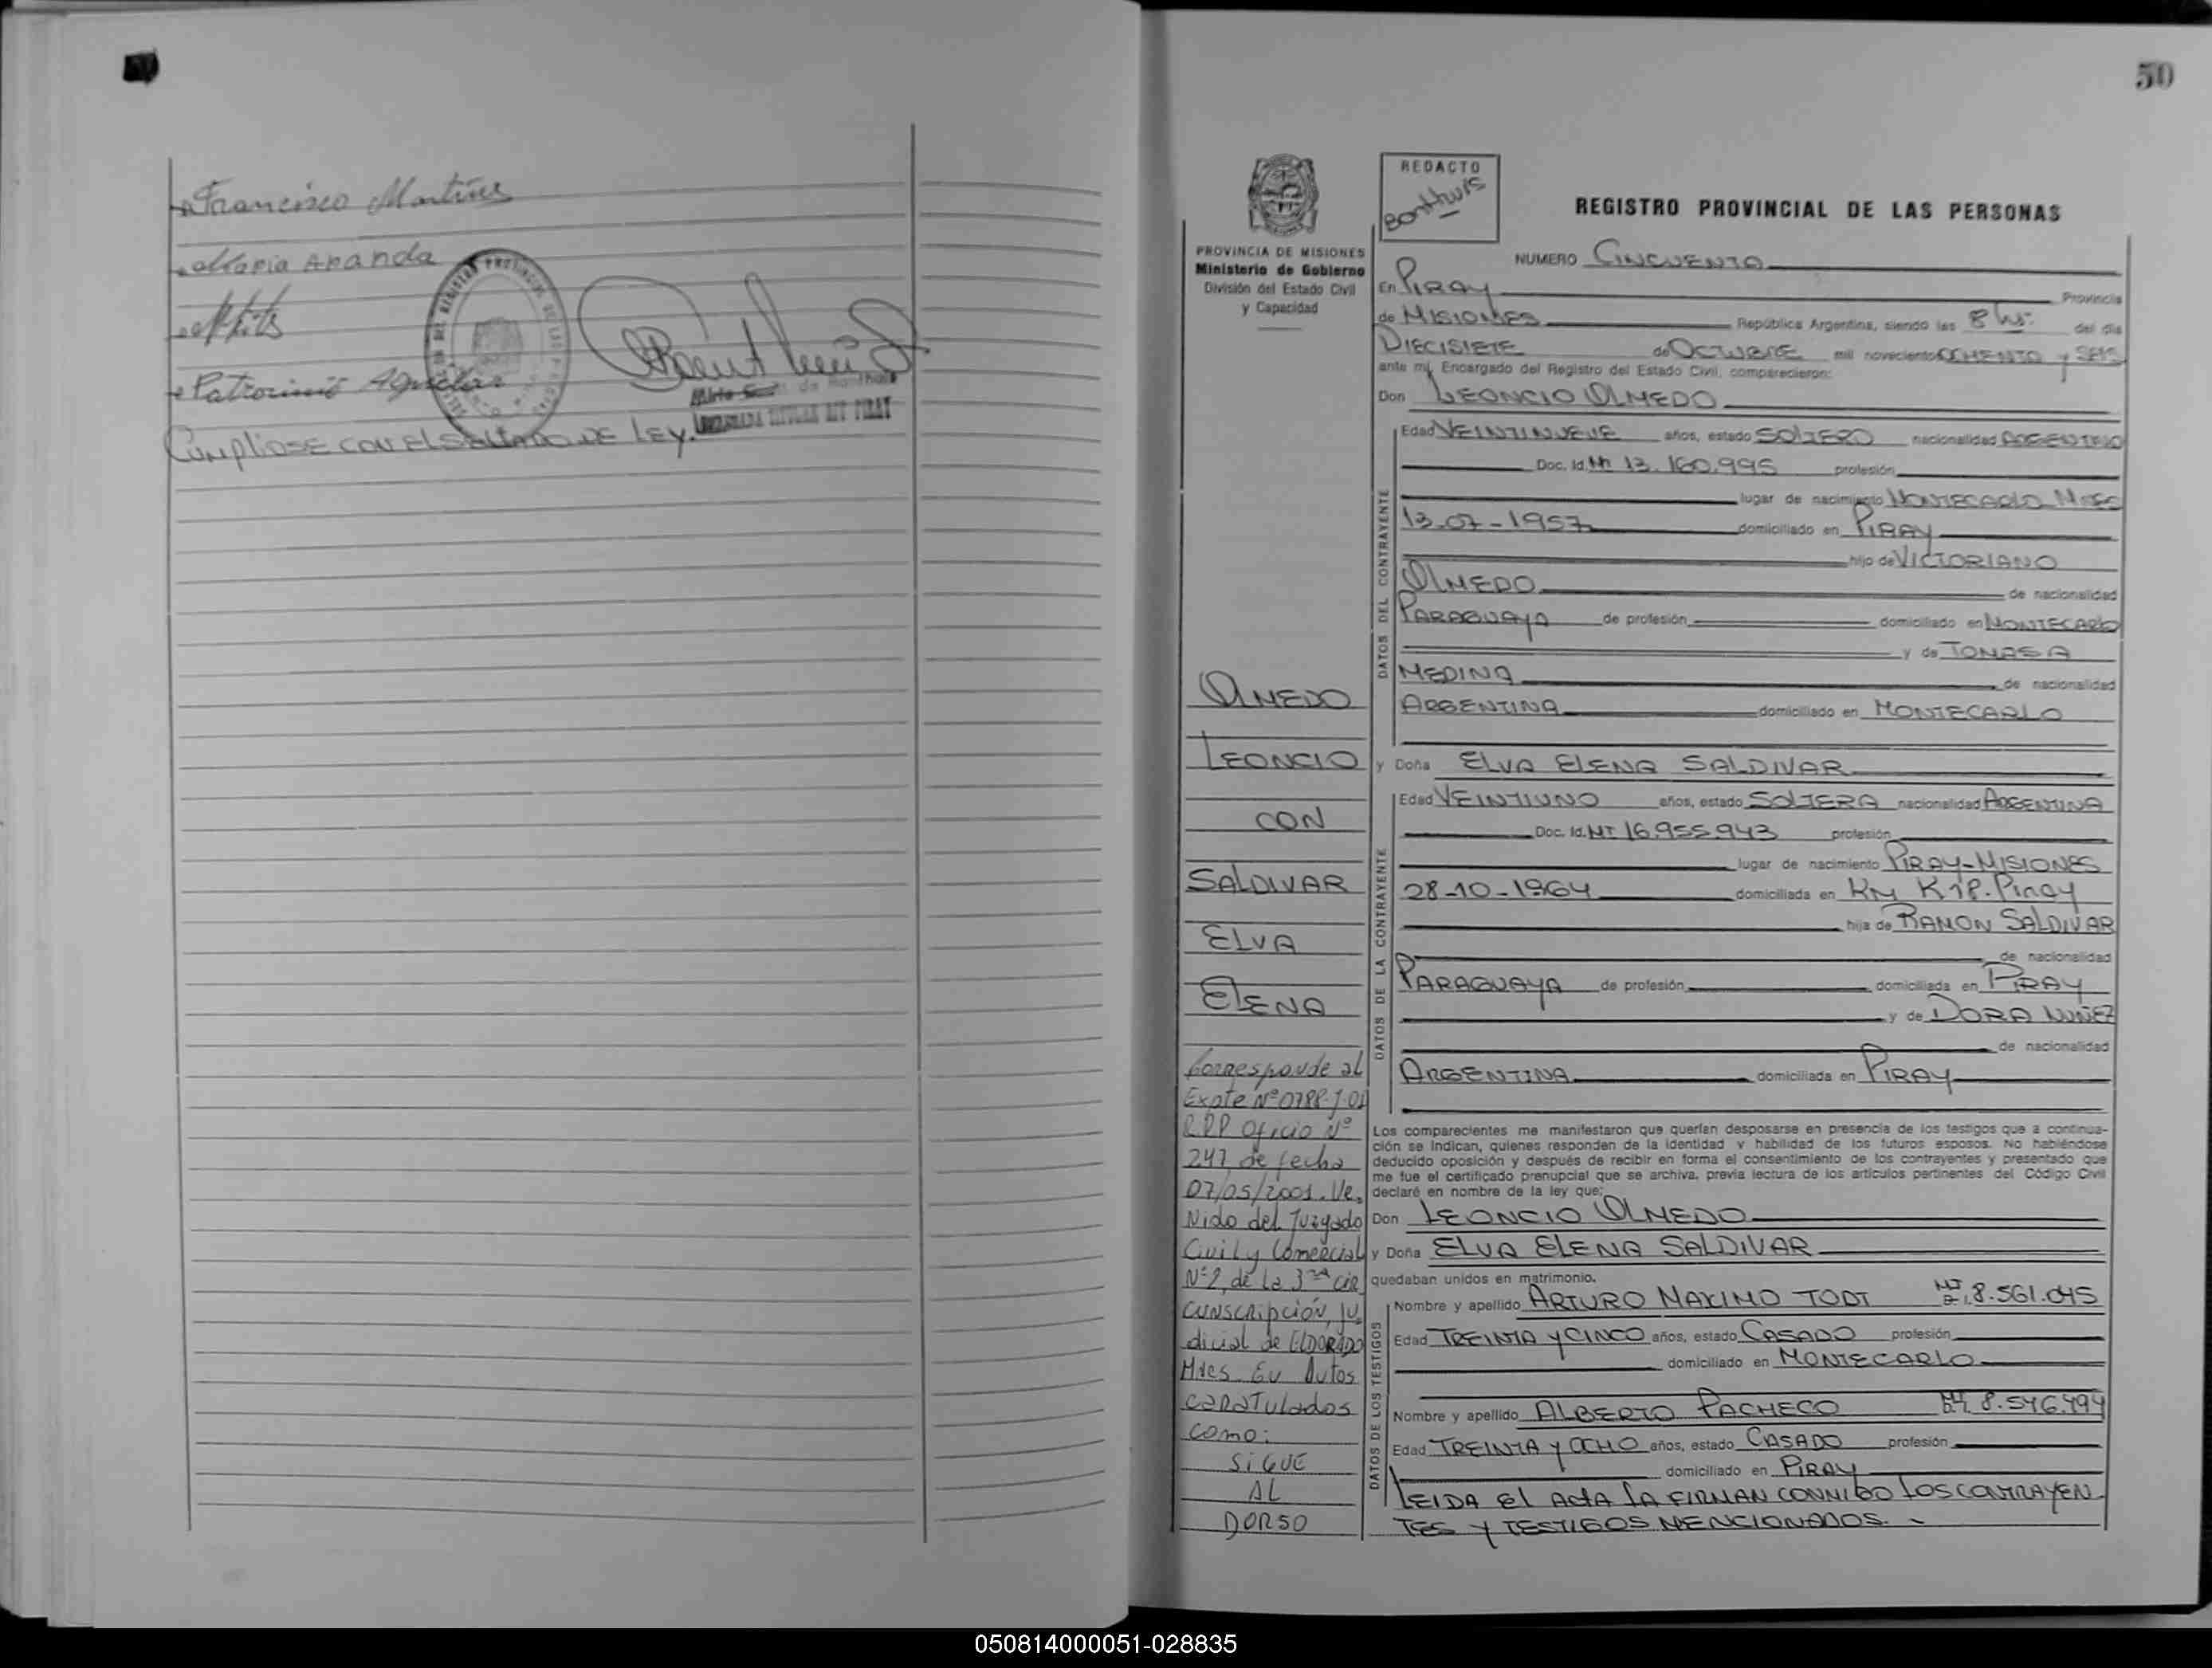 50
Francisco Martinez
Maria Aranda
Patrocinio Aguelar
Cumpliose con el sellado de Ley.
REDACTO
Bonthuis
PROVINCIA DE MISIONES
Ministerio de Gobierno
División del Estado Civil
y Capacidad
REGISTRO PROVINCIAL DE LAS PERSONAS
NUMERO CINCUENTA
En PIRAY Provincia
de MISIONES República Argentina, siendo las 8 hs. del día
DIECISIETE de OCTUBRE mil novecientos OCHENTA y SEIS
ante mí, Encargado del Registro del Estado Civil, comparecieron:
Don LEONCIO OLMEDO
DATOS DEL CONTRAYENTE
Edad VEINTINUEVE años, estado SOLTERO nacionalidad ARGENTINO
Doc. Id. MI 13.160.995 profesión
lugar de nacimiento MONTECARLO Mnes
13-07-1957 domiciliado en PIRAY
hijo de VICTORIANO
OLMEDO de nacionalidad
PARAGUAYA de profesión domiciliado en MONTECARLO
y de TOMASA
MEDINA de nacionalidad
ARGENTINA domiciliado en MONTECARLO
y Doña ELVA ELENA SALDIVAR
DATOS DE LA CONTRAYENTE
Edad VEINTIUNO años, estado SOLTERA nacionalidad ARGENTINA
Doc. Id. MI 16.955.943 profesión
lugar de nacimiento PIRAY-MISIONES
28-10-1964 domiciliada en Km 18-Piray
hija de RAMON SALDIVAR
de nacionalidad
PARAGUAYA de profesión domiciliada en PIRAY
y de DORA NUÑEZ
de nacionalidad
ARGENTINA domiciliada en PIRAY
Los comparecientes me manifestaron que querían desposarse en presencia de los testigos que a continua-
ción se indican, quienes responden de la identidad y habilidad de los futuros esposos. No habiéndose
deducido oposición y después de recibir en forma el consentimiento de los contrayentes y presentado que
me fue el certificado prenupcial que se archiva, previa lectura de los artículos pertinentes del Código Civil
declaré en nombre de la ley que:
Don LEONCIO OLMEDO
y Doña ELVA ELENA SALDIVAR
quedaban unidos en matrimonio.
DATOS DE LOS TESTIGOS
Nombre y apellido ARTURO MAXIMO TODT MI 8.561.045
Edad TREINTA y CINCO años, estado CASADO profesión
domiciliado en MONTECARLO
Nombre y apellido ALBERTO PACHECO MI 8.546.494
Edad TREINTA y OCHO años, estado CASADO profesión
domiciliado en PIRAY
LEIDA El ActA LA FIRMAN CONMIGO LOS CONTRAYEN
TES y TESTIGOS MENCIONADOS.-
OLMEDO
LEONCIO
CON
SALDIVAR
ELVA
ELENA
Corresponde al
Expte Nº 0788-J-01
RPP Oficio Nº
247 de fecha
07/05/2001. Ve,
Nido del Juzgado
Civil y Comercial
Nº 2, de la 3ra cir
cunscripción, Ju
dicial de ELDORADO
Mnes. En Autos
caratulados
como:
SIGUE
AL
DORSO
050814000051-028835